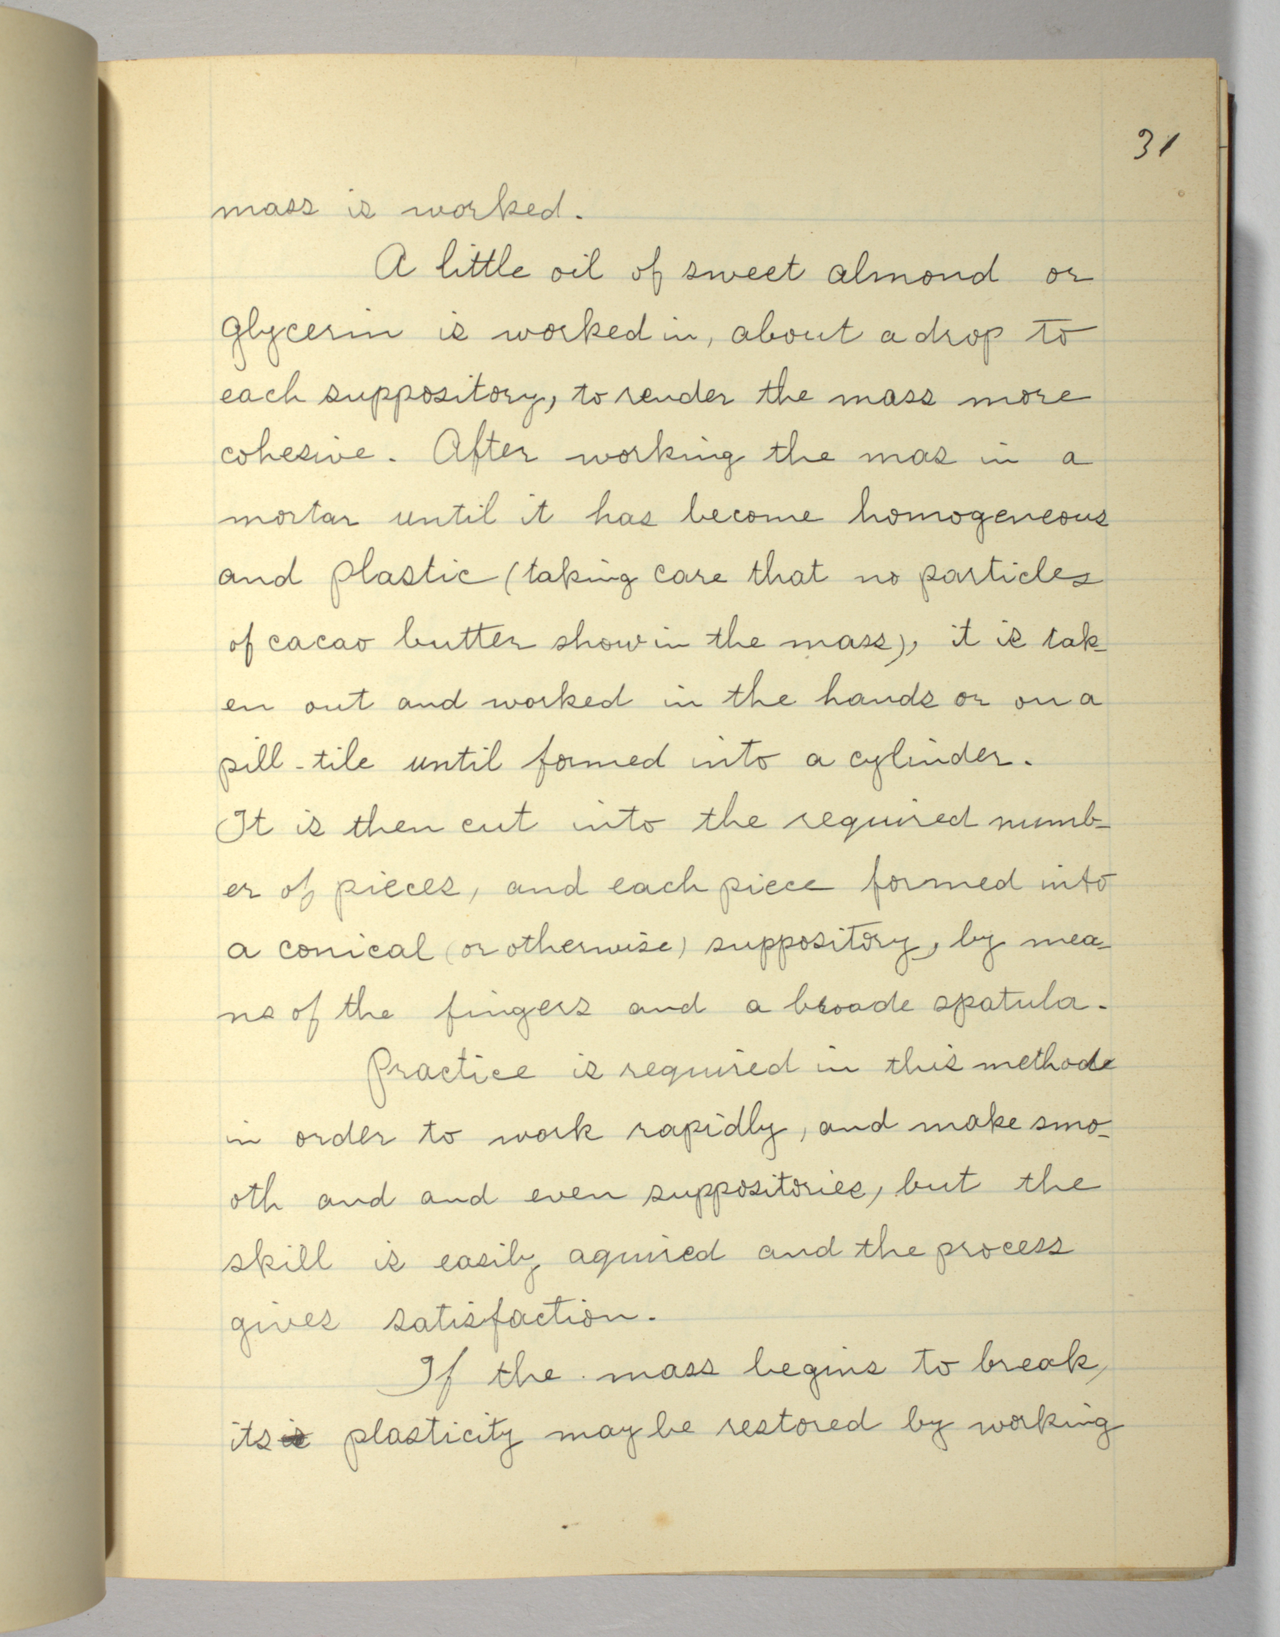 31
mass is worked.
A little oil of sweet almond or
glycerin is worked in, about a drop to
each suppository, to render the mass more
cohesive. After working the mas in a
mortar until it has become homogeneous
and plastic (taking care that no particles
of cacao butter show in the mass), it is tak-
en out and worked in the hands or on a
pill-tile until formed into a cylinder.
It is then cut into the required numb-
er of pieces, and each piece formed into
a conical (or otherwise) suppository, by mea-
ns of the fingers and a broade spatula.
Practice is required in this methode
in order to work rapidly, and make smo-
oth and and even suppositories, but the
skill is easily aquired and the process
gives satisfaction.
If the mass begins to break,
its is plasticity may be restored by working